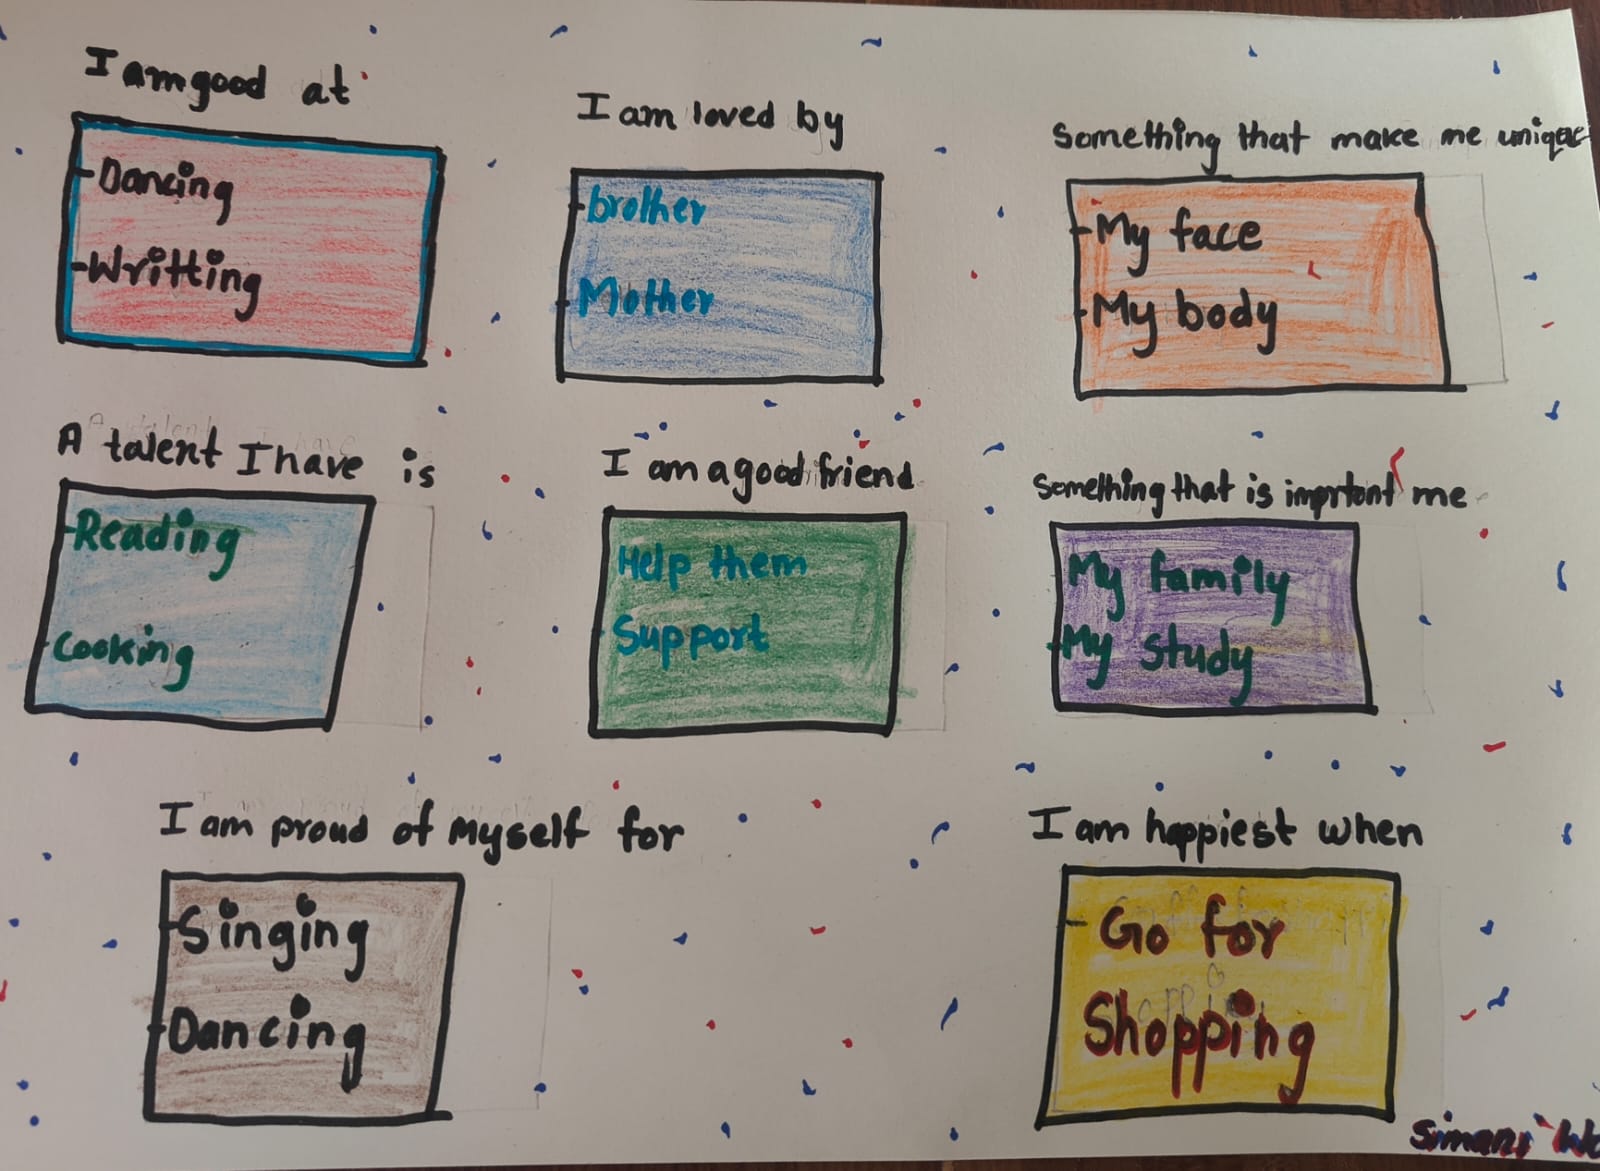 I am good at
- Dancing
- Writting
I am loved by
- brother
- Mother
Something that make me unique
- My face
- My body
A talent I have is
- Reading
- Cooking
I am a good friend
Help them
Support
Something that is imprtont me
- My family
- My study
I am proud of Myself for
- Singing
- Dancing
I am happiest when
- Go for
Shopping